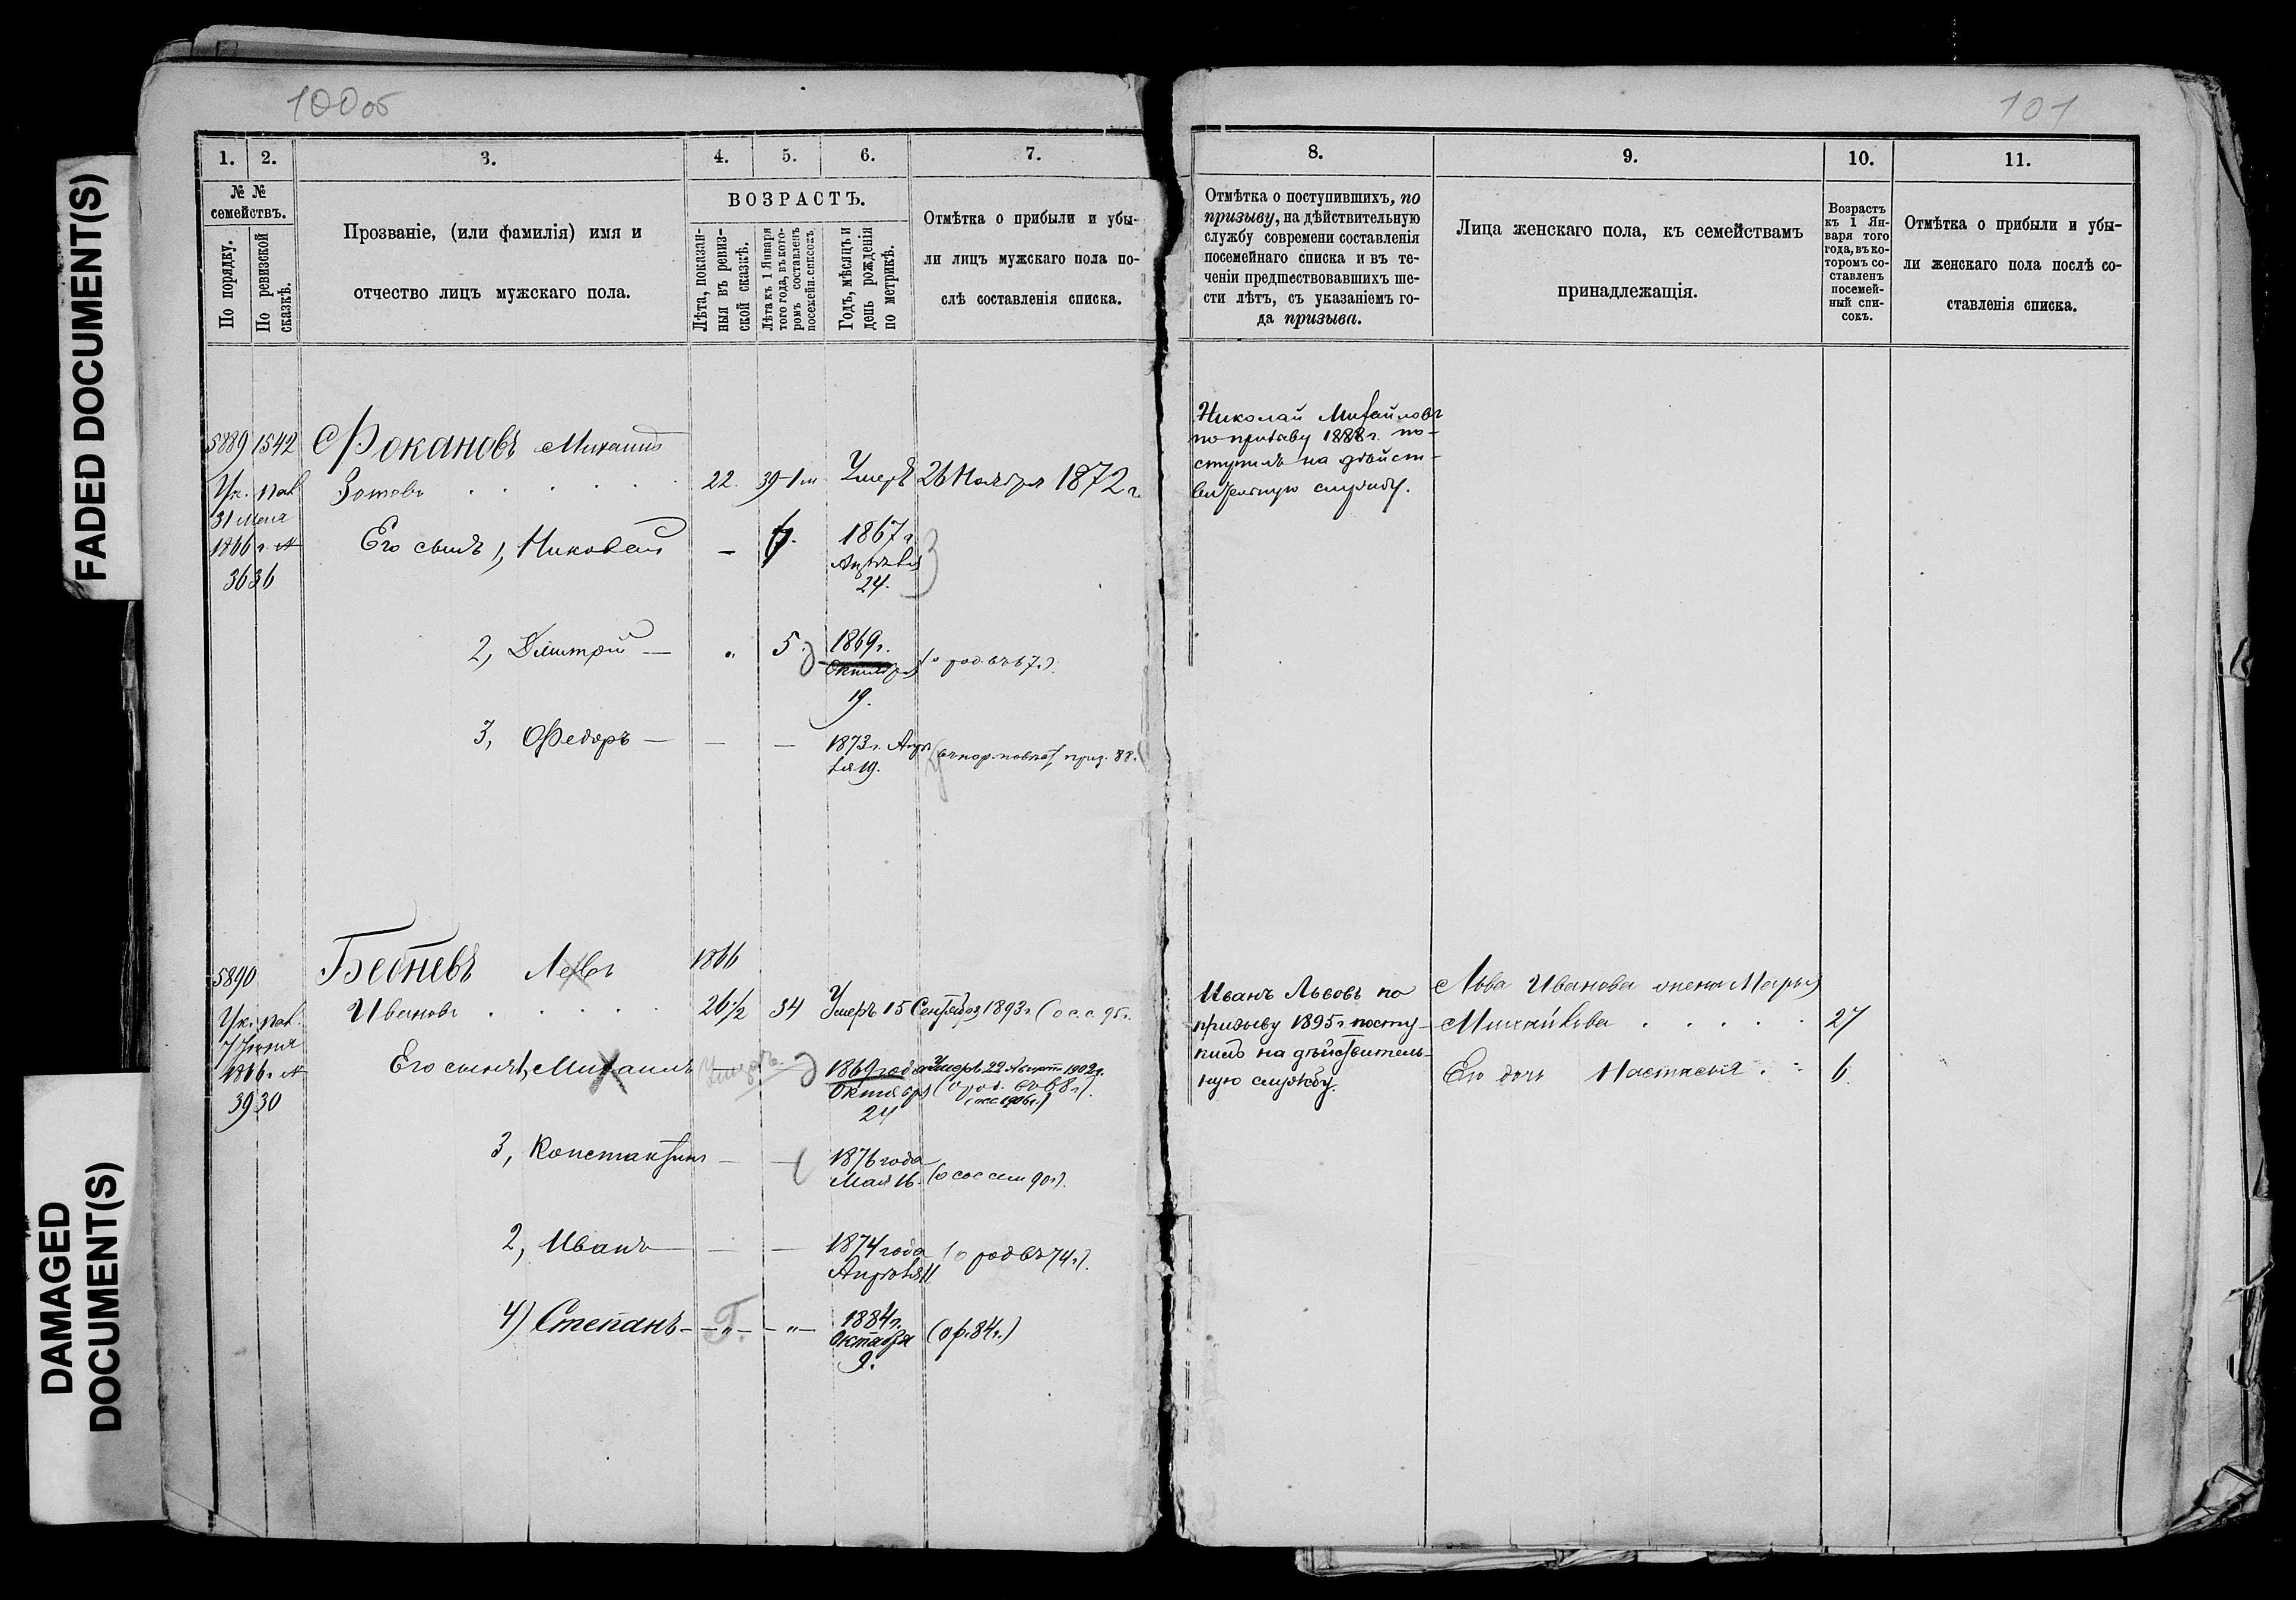 FADED DOCUMENT(S)
DAMAGED
DOCUMENT(S)
100об
1. 2. 3. 4. 5. 6. 7.
№ №
семействъ.
По порядку.
По ревизской
сказкѣ.
Прозваніе, (или фамилія) имя и
отчество лицъ мужскаго пола.
ВОЗРАСТЪ.
Лѣта, показан-
ныя въ ревиз-
ской сказкѣ.
Лѣта къ 1 Января
того года, въ кото-
ромъ составленъ
посемейн. списокъ
Годъ, мѣсяцъ и
день рожденія
по метрикѣ.
Отмѣтка о прибыли и убы-
ли лицъ мужскаго пола по-
слѣ составленія списка.
5889 1542 Фокановъ Михаилъ
Ук. пал. Зотовъ 22. 39 Умеръ 26 Ноября 1872 г.
31 Мая
1866 г. №
3636
Его сынъ 1, Николай — 1867 г.
Апрѣля
24.
2, Дмитрій — 5 1869 г.
Октября
19.
3, Федоръ — — — 1873 г. Апрѣ
ля 19.
5890 Левъ 1866
Ук. пал. Ивановъ 26 1/2 34 Умеръ 15 Сентября 1893 г. (о с. с. 95 г.
1866 г. №
3930
Его сыновья 1, Михаилъ 1869 года Умеръ 22 1902 г.
Октября (о род. въ 68 г.).
24
3, Константинъ — 1876 года
Мая 16.
2, Иванъ — — — 1874 года (о род въ 74 г.).
Апрѣля 11
4) Степанъ — „ — — „ — 1884 г.
Октября (о р. 84 г.)
9.
101
8. 9. 10. 11.
Отмѣтка о поступившихъ, по
призыву, на дѣйствительную
службу современи составленія
посемейнаго списка и въ те-
ченіи предшествовавшихъ ше-
сти лѣтъ, съ указаніемъ го-
да призыва.
Лица женскаго пола, къ семействамъ
принадлежащія.
Возрастъ
къ 1 Ян-
варя того
года, въ ко-
торомъ со-
ставленъ
посемей-
ный спи-
сокъ.
Отмѣтка о прибыли и убы-
ли женскаго пола послѣ со-
ставленія списка.
Николай Михайловъ
по призыву 1888 г. по-
ступилъ на дѣйст-
вительную службу.
Иванъ Львовъ по
призыву 1895 г. посту-
пилъ на дѣйствитель-
ную службу.
Льва Иванова жена Марья
Михайлова 27
Его дочь Настасья 6.